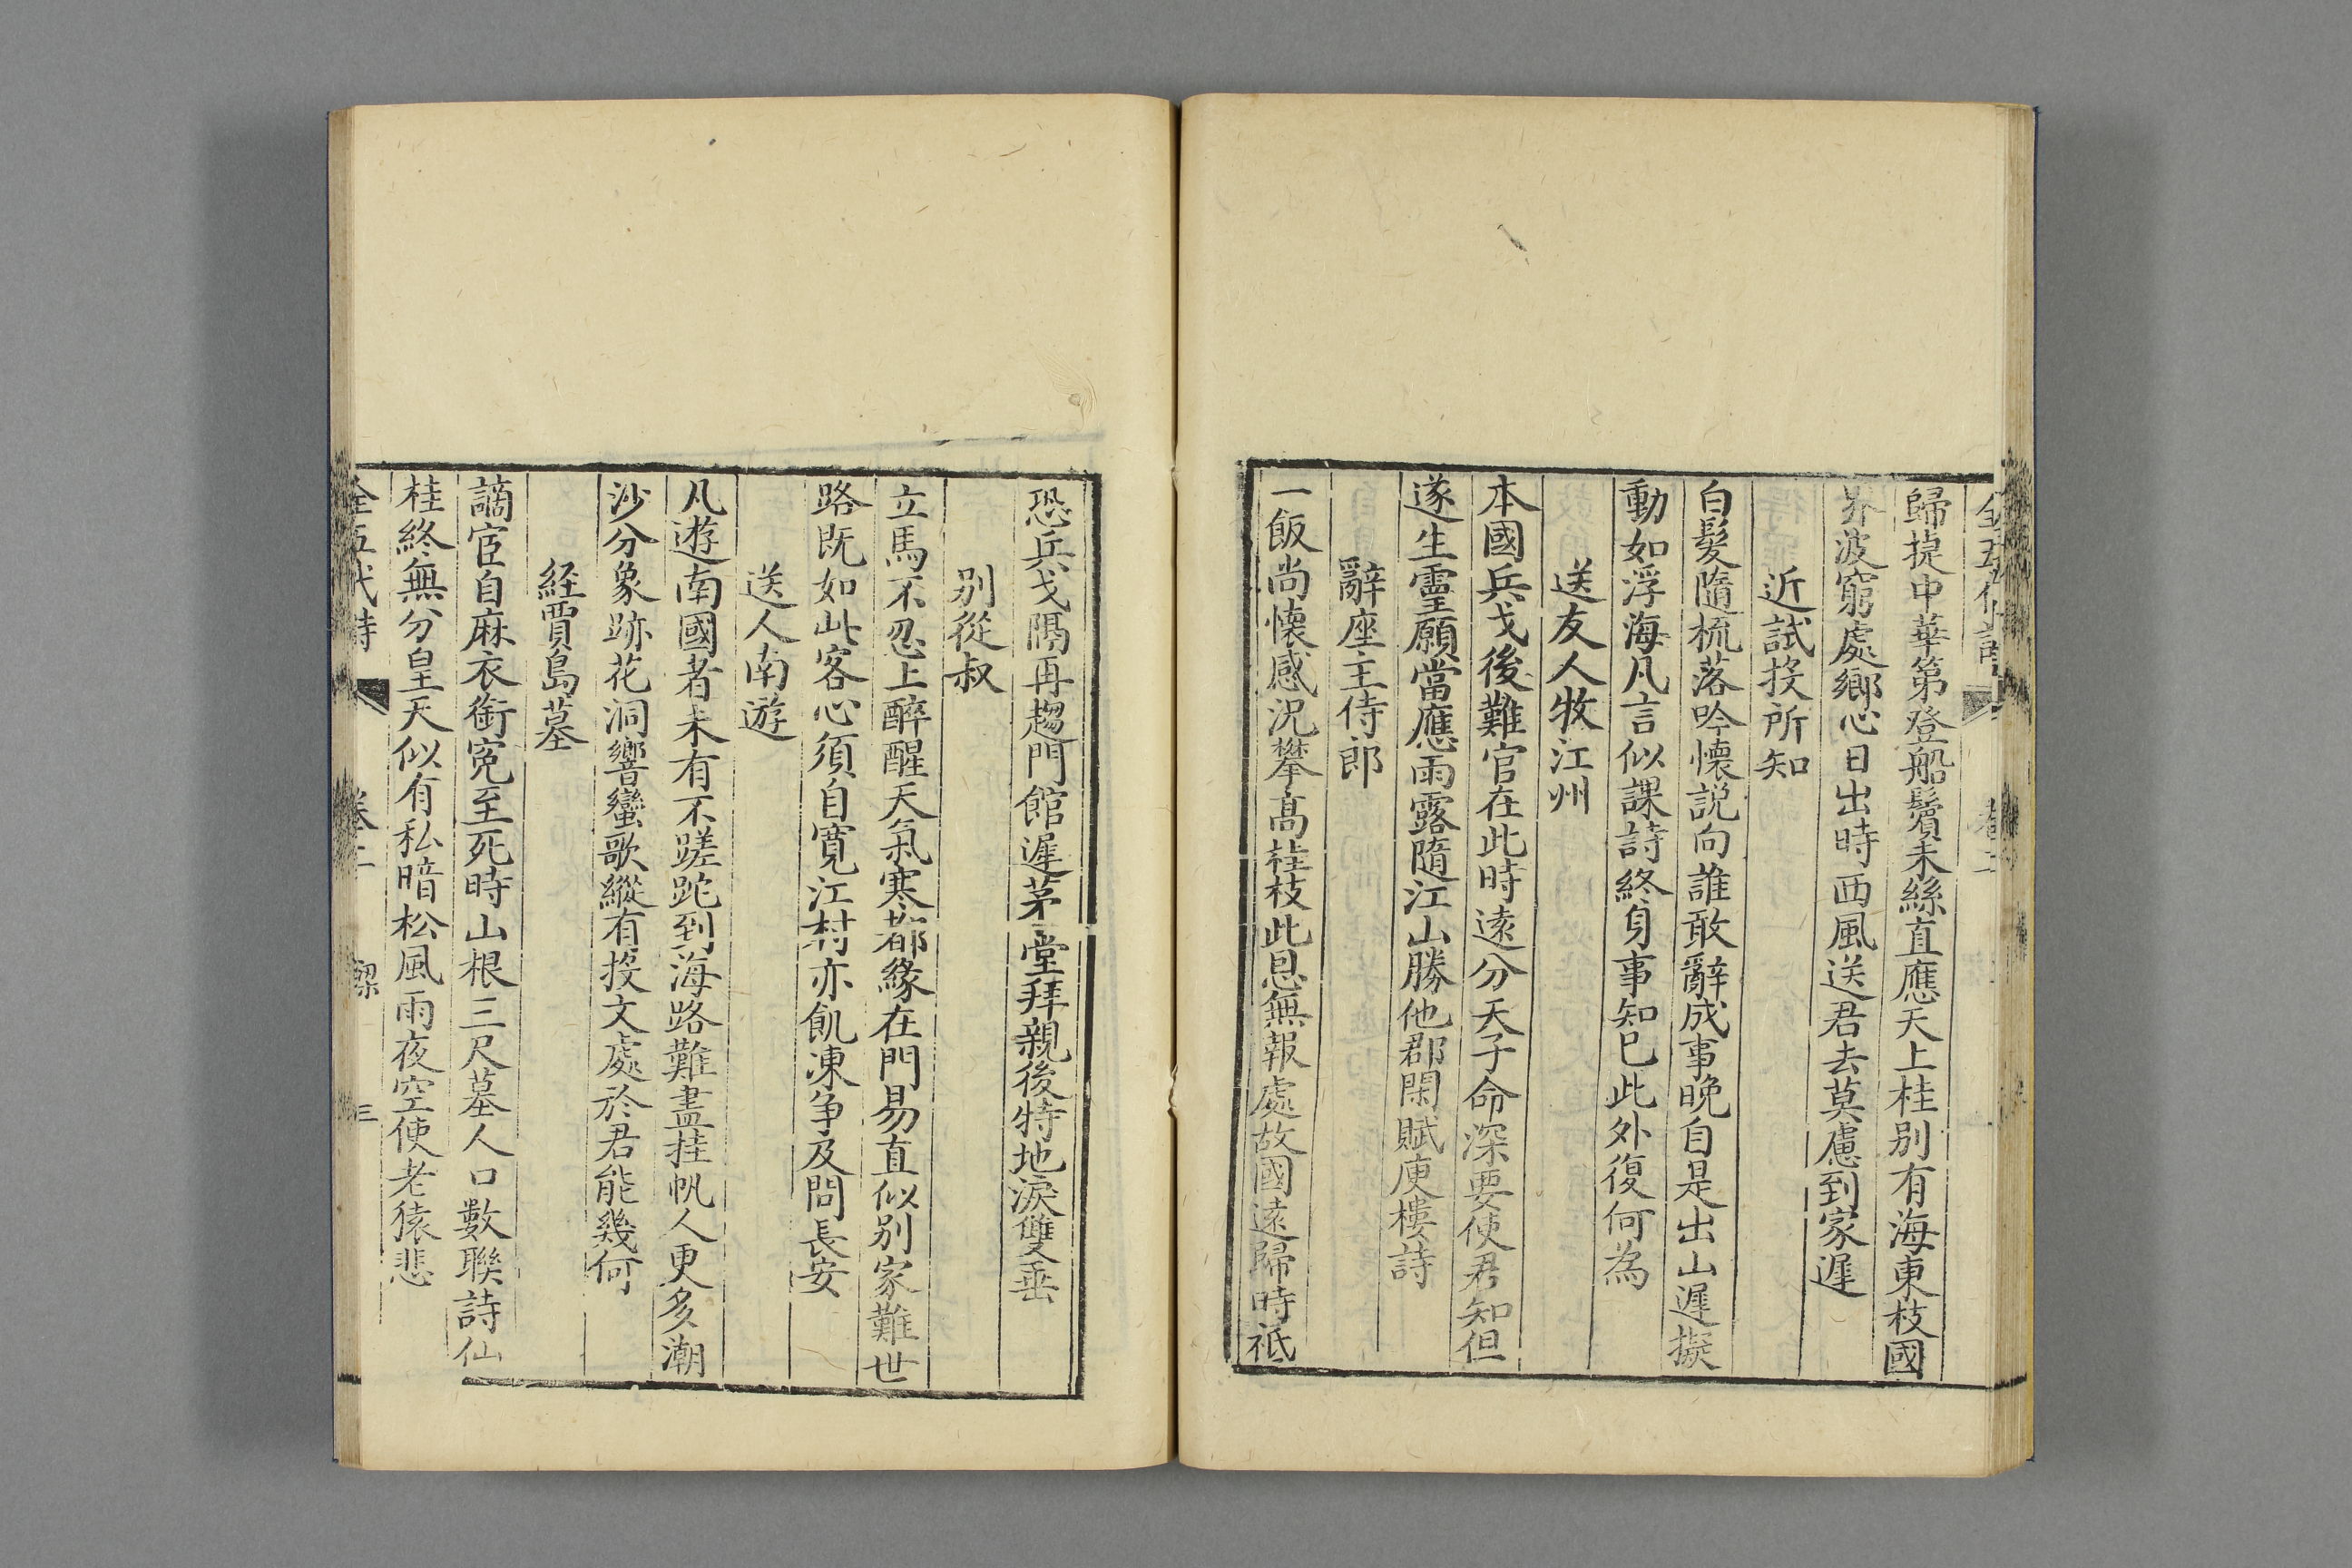 全五代詩
卷二
歸捷中華第登船鬢未絲直應天上桂别有海東枝國
界波窮處鄉心日出時西風送君去莫慮到家遲
近試投所知
白髮隨梳落吟懷説向誰敢辭成事晚自是出山遲擬
動如浮海凡言似課詩終身事知已此外復何為
送友人牧江州
本國兵戈後難官在此時遠分天子命深要使君知但
遂生靈願當應雨露隨江山勝他郡閑賦庾樓詩
辭座主侍郎
一飯尚懷感況攀髙桂枝此恩無報處故國遠歸時祗
恐兵戈隔再趨門館遲茅堂拜親後特地淚雙垂
别從叔
立馬不忍上醉醒天氣寒都緣在門易直似别家難世
路既如此客心須自寛江村亦飢凍争及問長安
送人南遊
凡遊南國者未有不蹉跎到海路難盡挂帆人更多潮
沙分象跡花洞響蠻歌縱有投文處於君能幾何
経賈島墓
謫宦自麻衣銜寃至死時山根三尺墓人口數聯詩仙
桂終無分皇天似有私暗松風雨夜空使老猿悲
全五代詩
卷二
梁
三